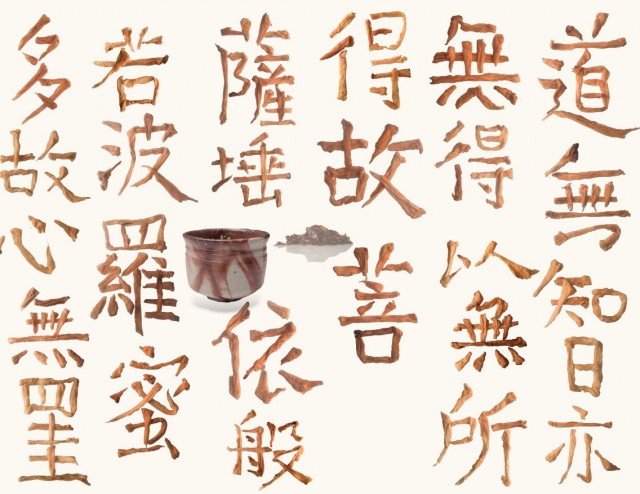 道無智亦
無得以無所
得故菩
薩埵依般
若波羅蜜
多故心無罣